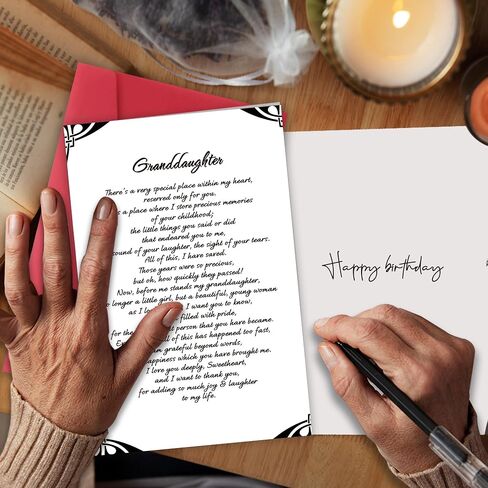 Granddaughter
There's a very special place within my heart,
reserved only for you.
a place where I store precious memories
of your childhood;
the little things you said or did
that endeared you to me,
sound of your laughter, the sight of your tears.
All of this, I have saved.
Those years were so precious,
but oh, how quickly they passed!
Now, before me stands my granddaughter,
longer a little girl, but a beautiful, young woman
as I I want you to know,
filled with pride,
for the person that you have became.
all of this has happened too fast,
am grateful beyond words,
happiness which you have brought me.
I love you deeply, Sweetheart,
and I want to thank you,
for adding so much joy & laughter
to my life.
Happy birthday